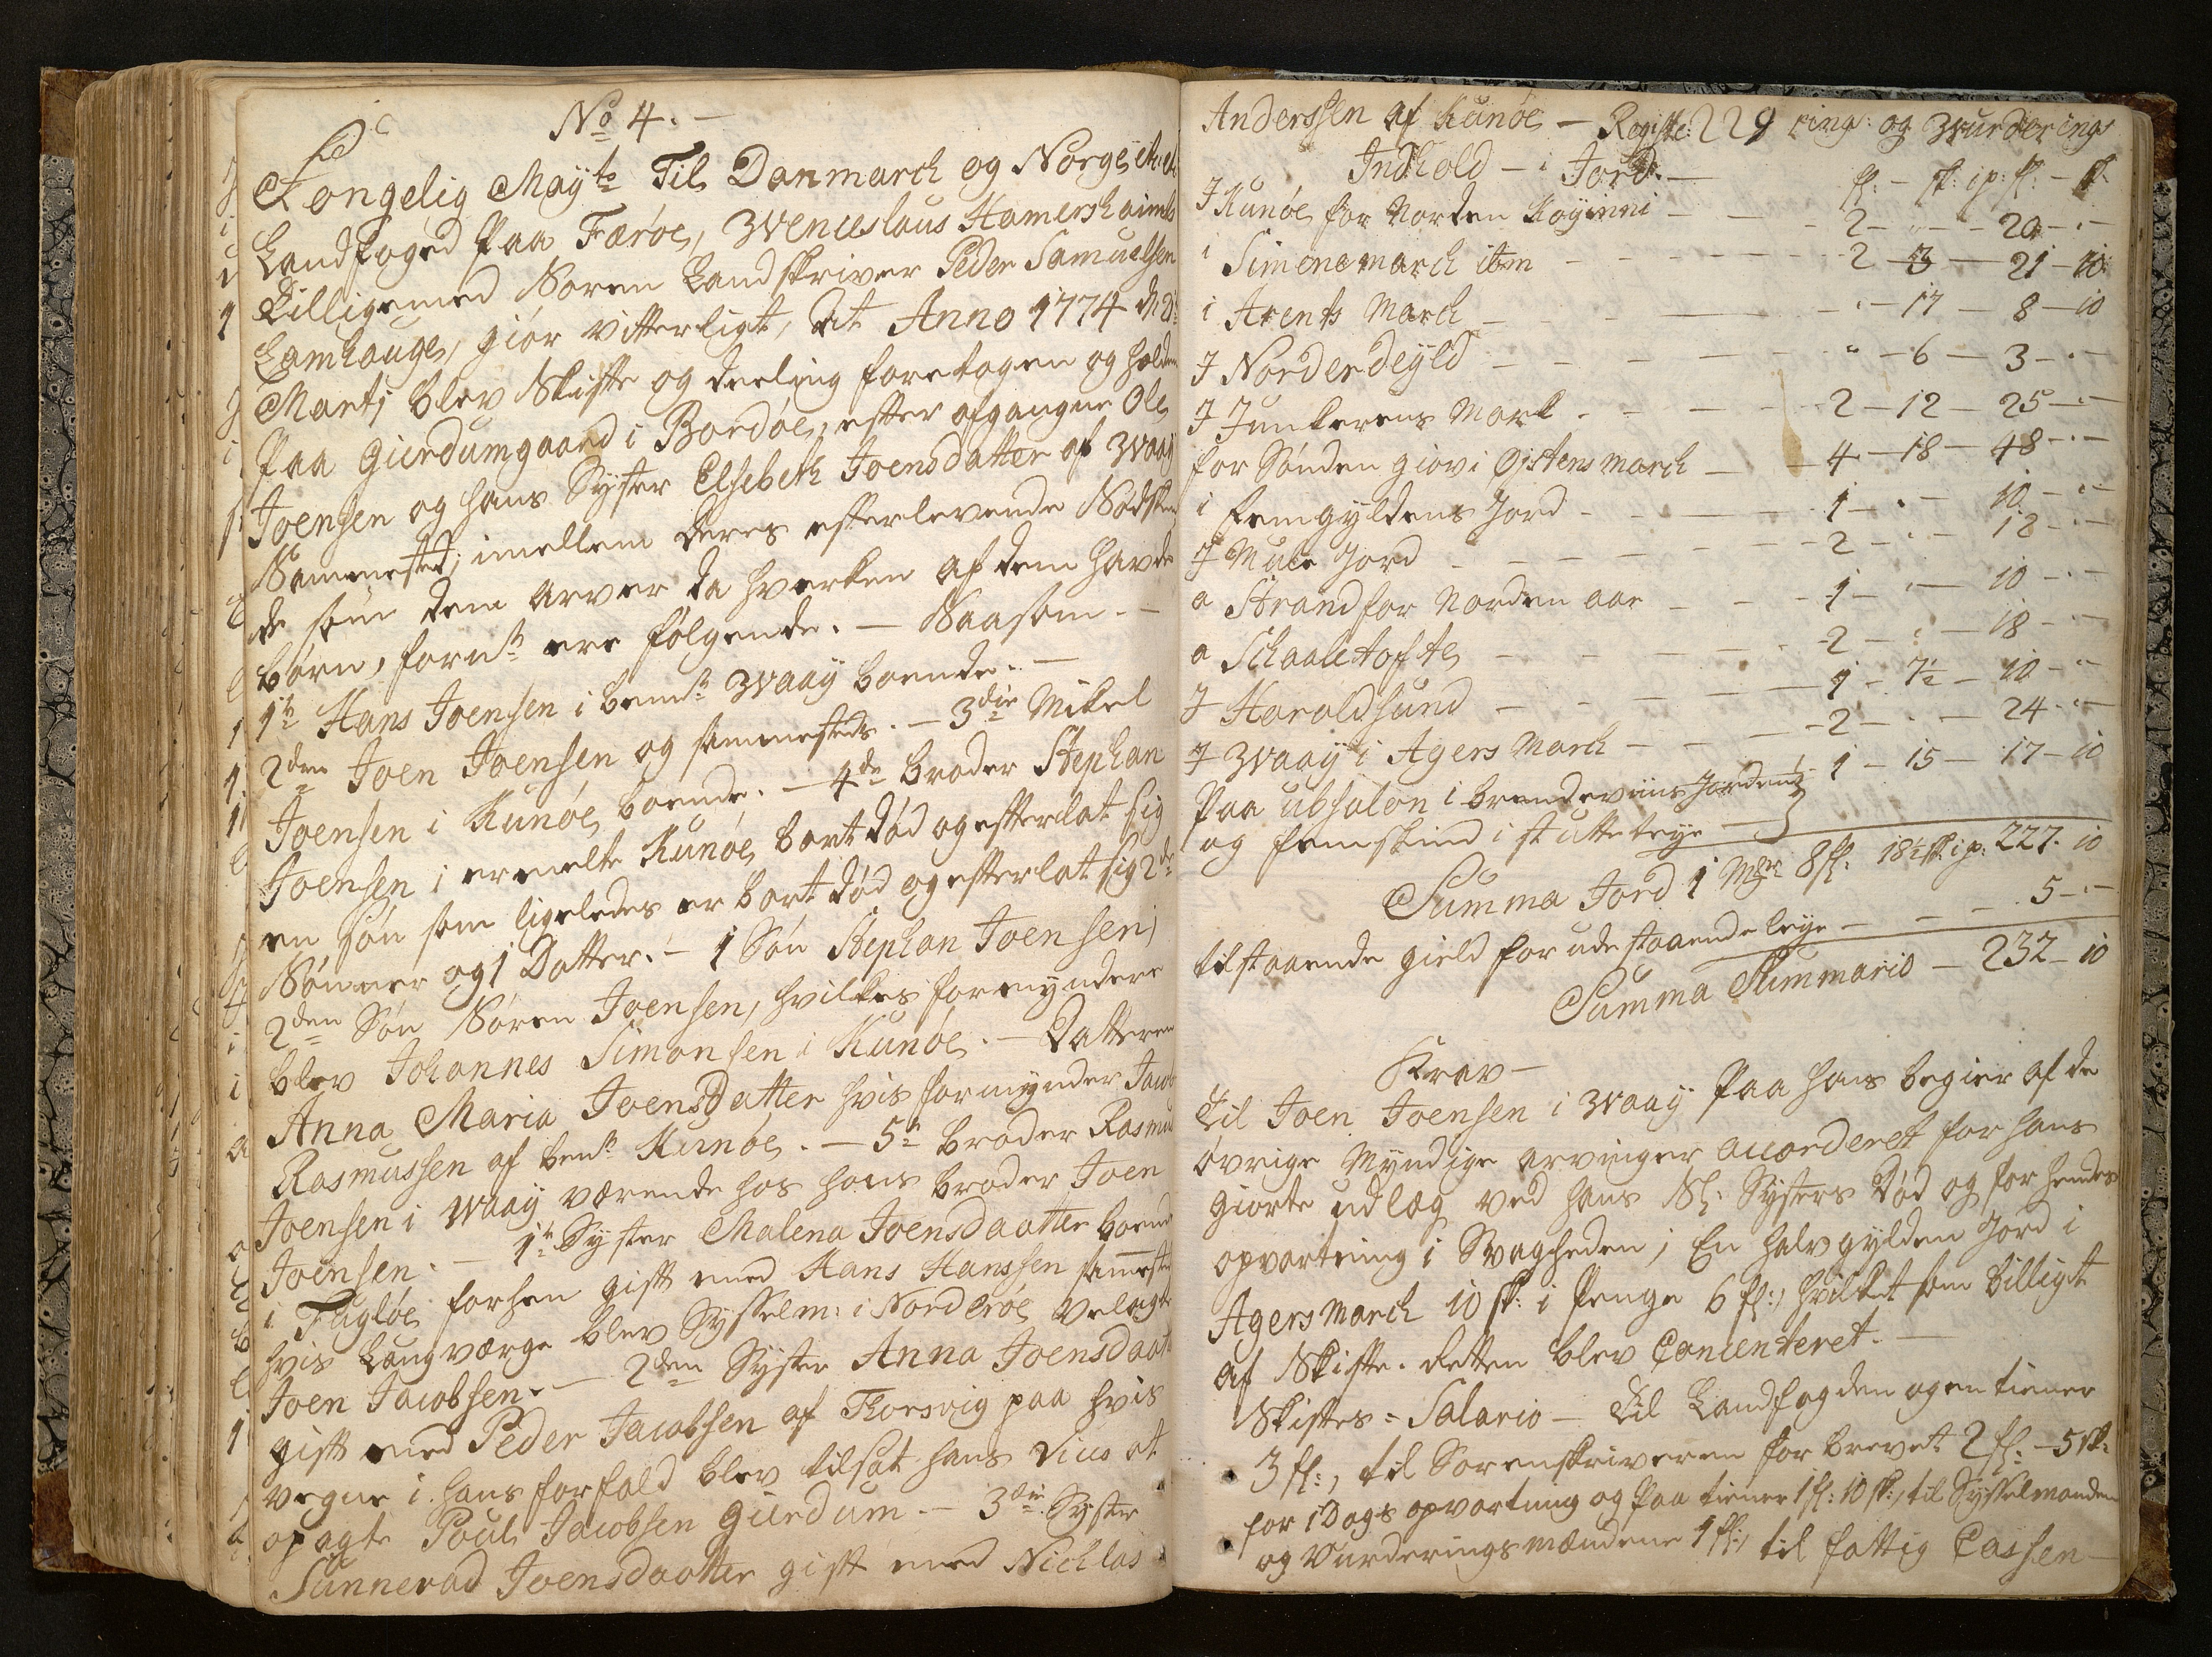 No 4. —
Kongelig Mayts Til Danmarck og Norge
Landfoged paa Færøe, Wenceslaus Hamershaimb
Lilligemed Soren Landskriver Peder Samuelsen
Lamhauge, giør vitterligt, At Anno 1774 d 2
Marti blev Skifte og deeling foretagen og holden
paa Gierdumgaard i Bordøe, efter afgangne Ole
Joensen og hans Syster Elsebeth Joensdatter af Waay
Sammested; imellem deres efterlevende Sødsken
de som dem arver da hverken af dem havde
børn, fornt. ere følgende. — Saasom. —
1te Hans Joensen i bemt. Waay boende. —
2den Joen Joensen og sammesteds. — 3die Mikel
Joensen i Kunøe boende. — 4de broder Stephan
Joensen i ermelte Kunøe bort død og efterlat sig
en søn som ligeledes er bort død og efterlat sig 2de
Sønner og 1 Datter. — 1 Søn Stephan Joensen,
2den Søn Søren Joensen, hvilkes formyndere
blev Johannes Simonsen i Kunøe. — Datteren
Anna Maria Joensdatter hvis formynder Jacob
Rasmussen af bemt. Kunøe. — 5te broder Rasmus
Joensen i Waay værende hos hans broder Joen
Joensen. — 1te Syster Malena Joensdaatter boende
i Fugløe forhen gift med Hans Hanssen sammested
hvis Laugværge blev Sysselm: i Norderøe velagte
Joen Jacobsen. — 2den Syster Anna Joensdaatter
gift med Peder Jacobsen af Thorsvig paa hvis
vegne i hans forfald blev tilsat hans
opagte Poul Jacobsen Gierdum — 3die Syster
Sunnevad Joensdaatter gift med Nichlas
Anderssen af Kunøe — Registe: 229 rings og Wurderings
Indhold — i Jord. — fl: — sk: ip: fl: — sk:
I Kunøe for Norden Køyinni — — 2 — " — 20 — " —
i Simonemarck ibm — — — 2 — 3 — 21 — 10
i Arents Marck — — — " — 17 — 8 — 10
I Norderdeyld — — — " — 6 — 3 — " —
I Junkerens Mark — — — 2 — 12 — 25 — " —
for Sønden giovi Østens march — — 4 — 18 — 48 — " —
i Femgyldens Jord — — — 1 — " — 10 — " —
I Mule Jord — — — 2 — " — 12 — " —
a Strand for Norden aar — — — 1 — " — 10 — " —
a Schaaletofte — — — 2 — " — 18 — " —
I Haraldsund — — — 1 — 7½ — 10 — " —
I Waay i Agers March — — — 2 — " — 24 — " —
paa ubsalon i brendeviins Jorden
og femskind i stutteleye — 1 — 15 — 17 — 10
Summa Jord 1 Mgr 8 fl: 18½ sk ip: 227 . 10
tilstaaende gield for udestaaende leye — — — 5 — " —
Summa Summario — 232 — 10
Krav —
Til Joen Joensen i Waay paa hans begier af de
øvrige Myndige arvinger accorderet for hans
giorte udlæg ved hans Sl: Systers Død og for hendes
opvartning i Svagheden; En halv gylden Jord i
Agersmarch 10 sk: i Penge 6 fl:, hvilket som billigt
af Skifte. Retten blev Concenteret. —
Skiftes = Salario — Til Landfogden og en tiener
3 fl:, til Sorenskriveren for brevet 2 fl: — 5 sk:
for 1 Dags opvartning og paa tiener 1 fl: 10 sk:, til Sysselmanden
og Vurderingsmændene 1 fl:, til fattig Cassen —